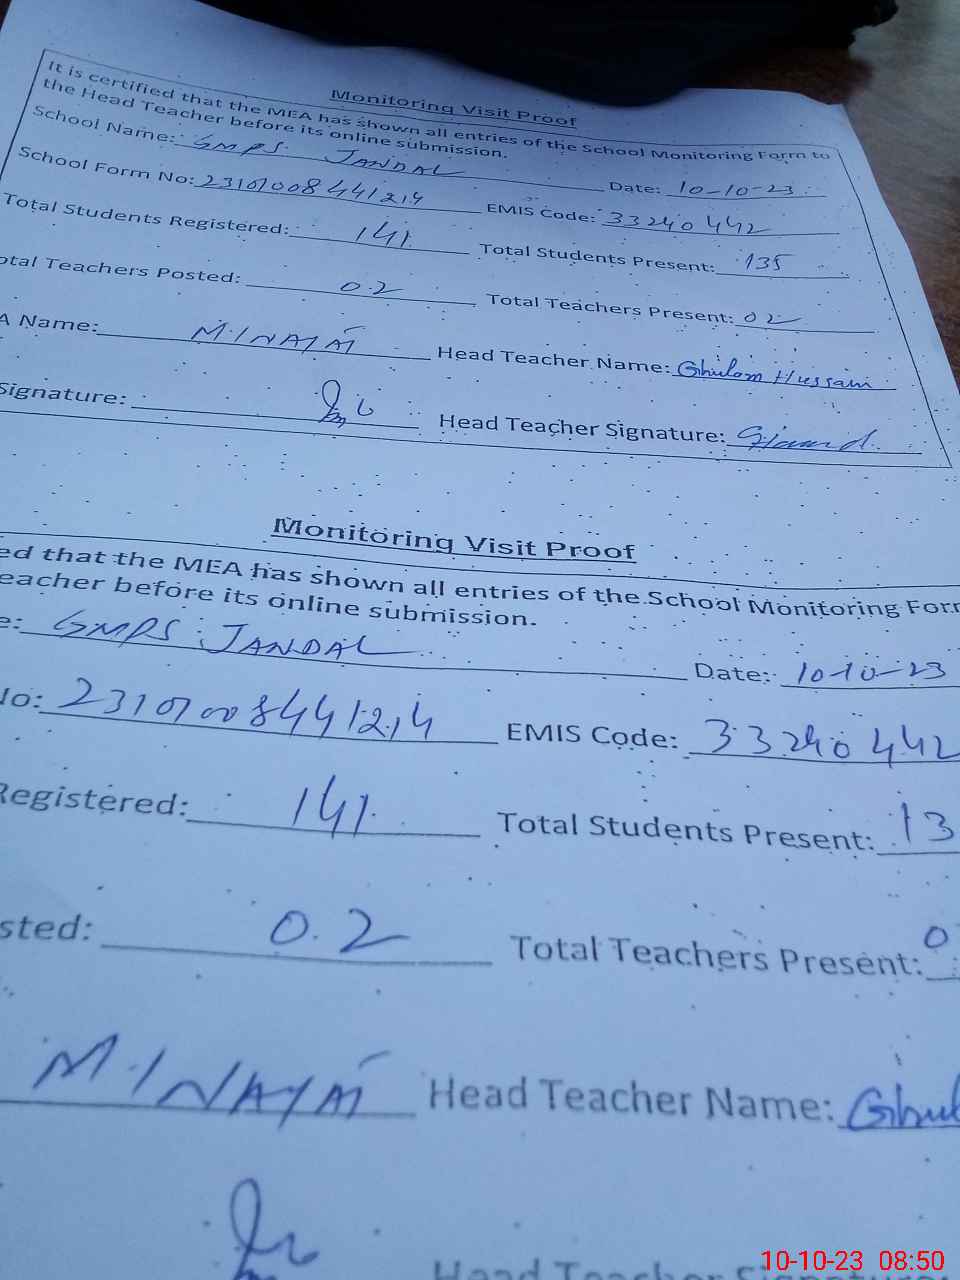 Monitoring Visit Proof
It is certified that the MEA has shown all entries of the School Monitoring Form to
the Head Teacher before its online submission.
School Name: GMPS JANDAL Date: 10-10-23
School Form No: 23101008441214 EMIS Code: 33240442
Total Students Registered: 141 Total Students Present: 135
otal Teachers Posted: 02 Total Teachers Present: 02
A Name: M. INAYAT Head Teacher Name: Ghulam Hussain
Signature: Head Teacher Signature:
Monitoring Visit Proof
ed that the MEA has shown all entries of the School Monitoring Form
eacher before its online submission.
e: GMPS JANDAL Date: 10-10-23
No: 23101008441214 EMIS Code: 33240442
Registered: 141 Total Students Present: 13
sted: 02 Total Teachers Present: 0
M. INAYAT Head Teacher Name: Ghul
Head Teacher
10-10-23 08:50